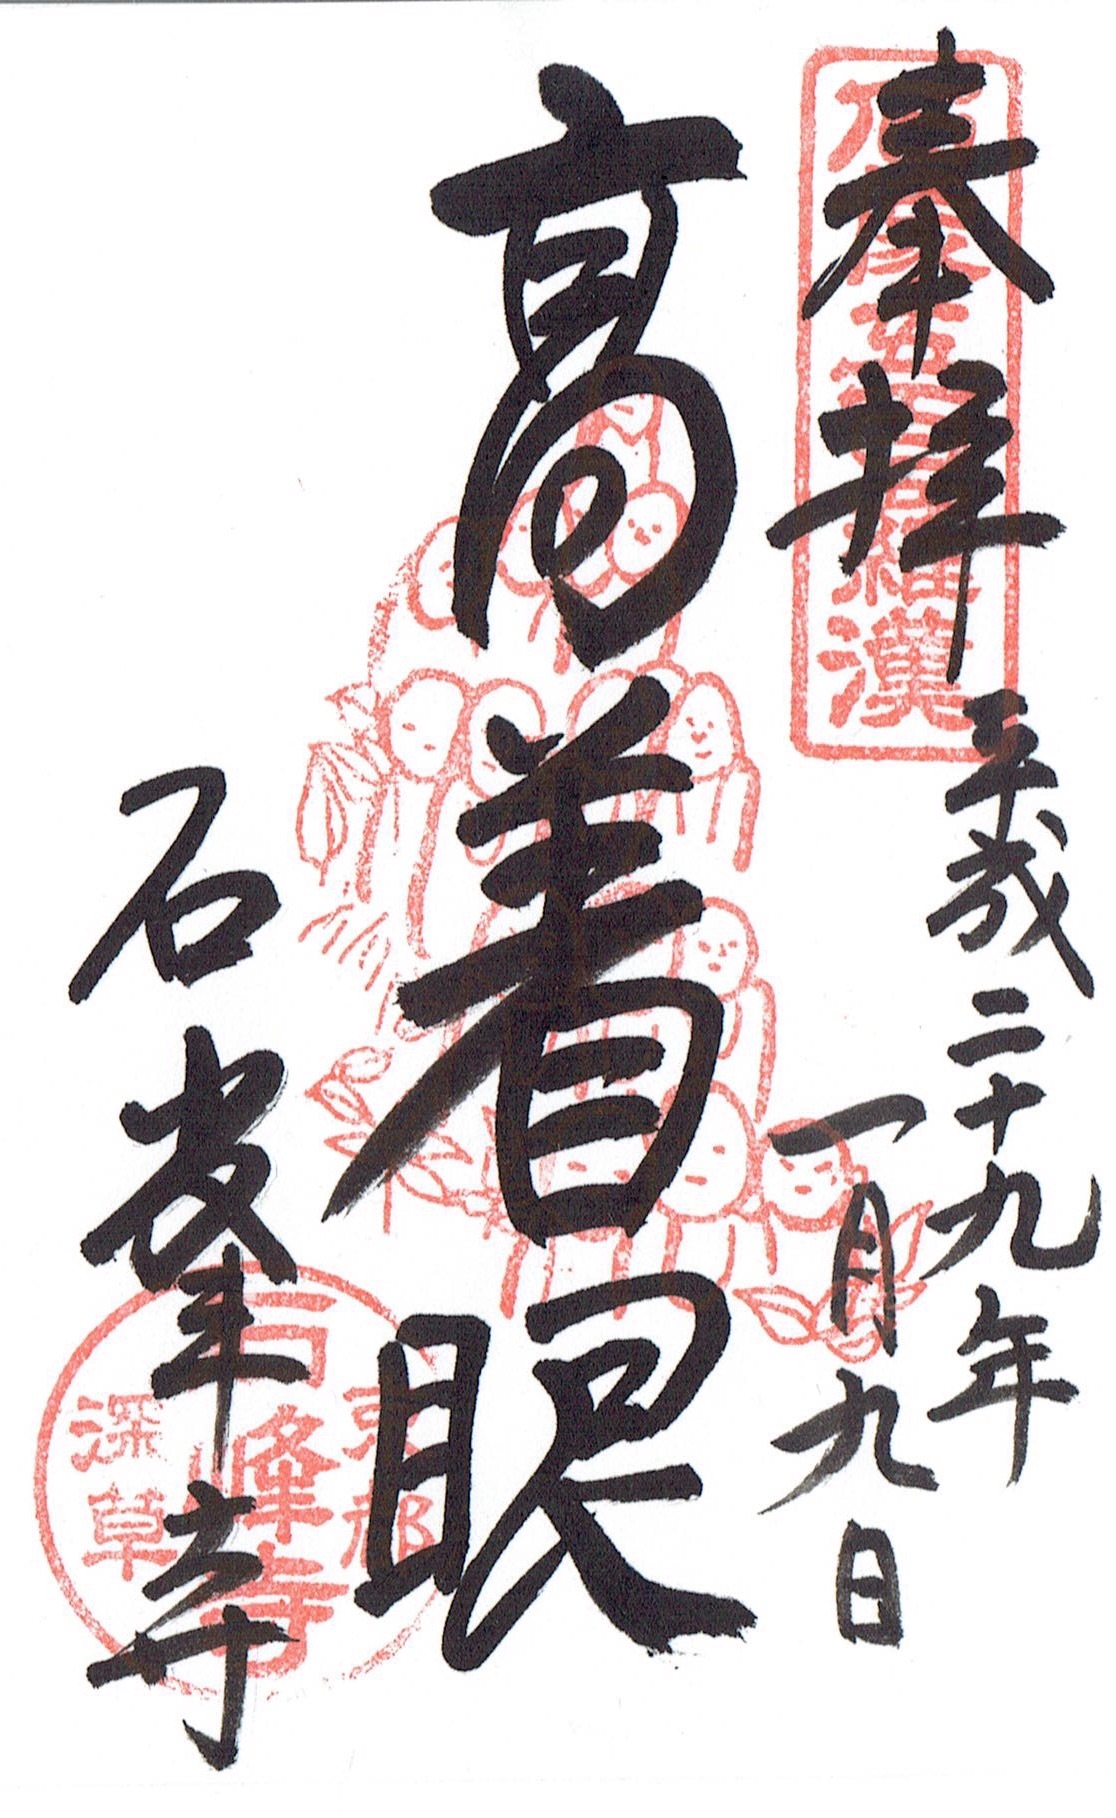 奉拝
平成二十九年
一月九日
高着眼
石峯寺
五百羅漢
京都
石峰寺
深草